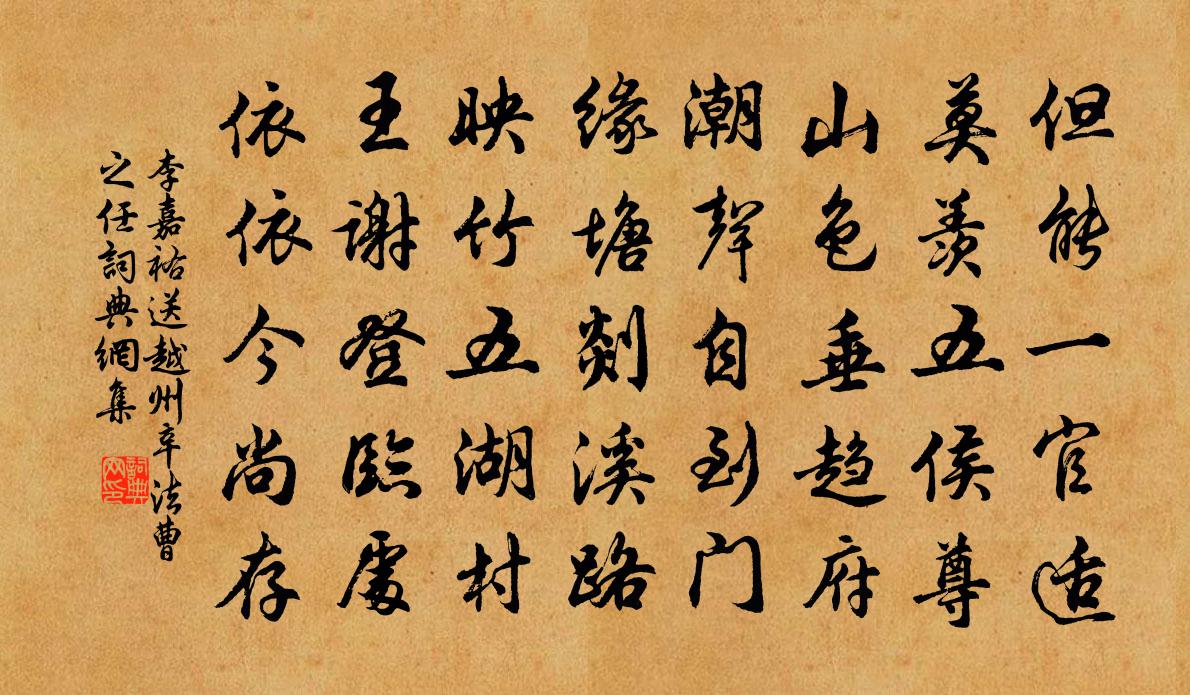 但能一官适
莫羨五侯尊
山色垂趋府
潮聲自到门
緣塘剡溪路
映竹五湖村
王謝登臨處
依依今尚存
李嘉祐送越州辛法曹
之任詞典網集
詞典
网印